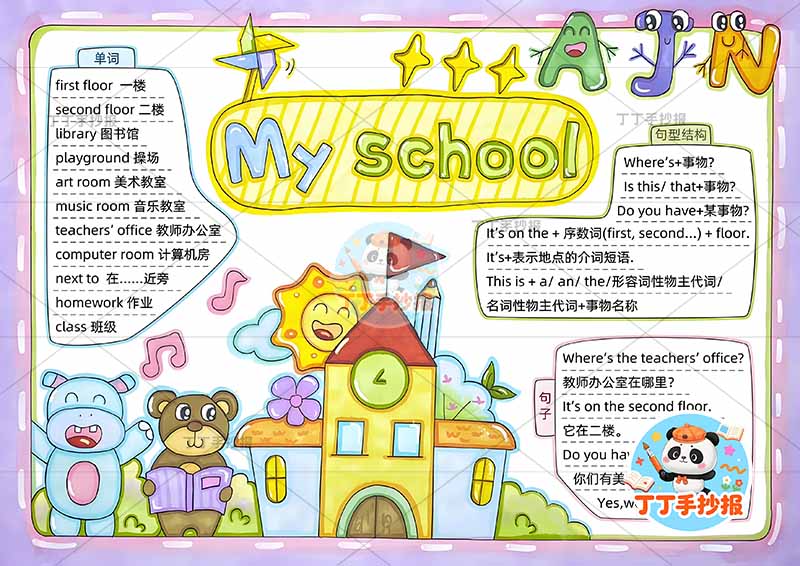 My school
单词
first floor 一楼
second floor 二楼
library 图书馆
playground 操场
art room 美术教室
music room 音乐教室
teachers' office 教师办公室
computer room 计算机房
next to 在......近旁
homework 作业
class 班级
A J N
句型结构
Where's+事物?
Is this/ that+事物?
Do you have+某事物?
It's on the + 序数词(first, second...) + floor.
It's+表示地点的介词短语.
This is + a/ an/ the/形容词性物主代词/
名词性物主代词+事物名称
句子
Where's the teachers' office?
教师办公室在哪里?
It's on the second floor.
它在二楼。
Do you
你们有美
Yes,
丁丁手抄报
丁丁手抄报
丁丁手抄报
丁丁手抄报
丁丁手抄报
丁丁手抄报